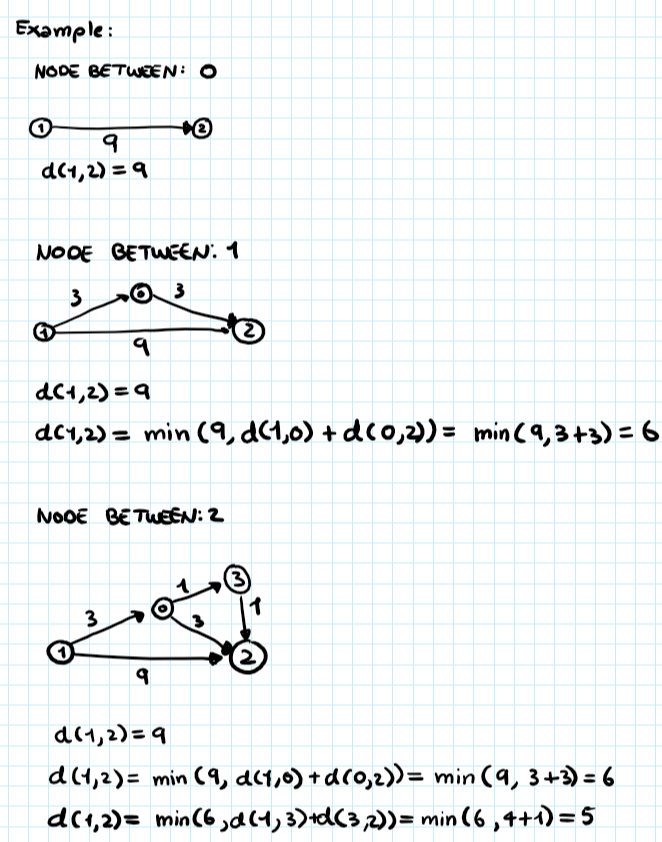 Example:
NODE BETWEEN: 0
1 2
9
d(1,2) = 9
NODE BETWEEN: 1
3 0 3
1 2
9
d(1,2) = 9
d(1,2) = min (9, d(1,0) + d(0,2)) = min(9,3+3) = 6
NODE BETWEEN: 2
1 3
3 0 3 1
1 2
9
d(1,2) = 9
d(1,2) = min (9, d(1,0) + d(0,2)) = min (9, 3+3) = 6
d(1,2) = min(6, d(1,3)+d(3,2)) = min(6, 4+1) = 5